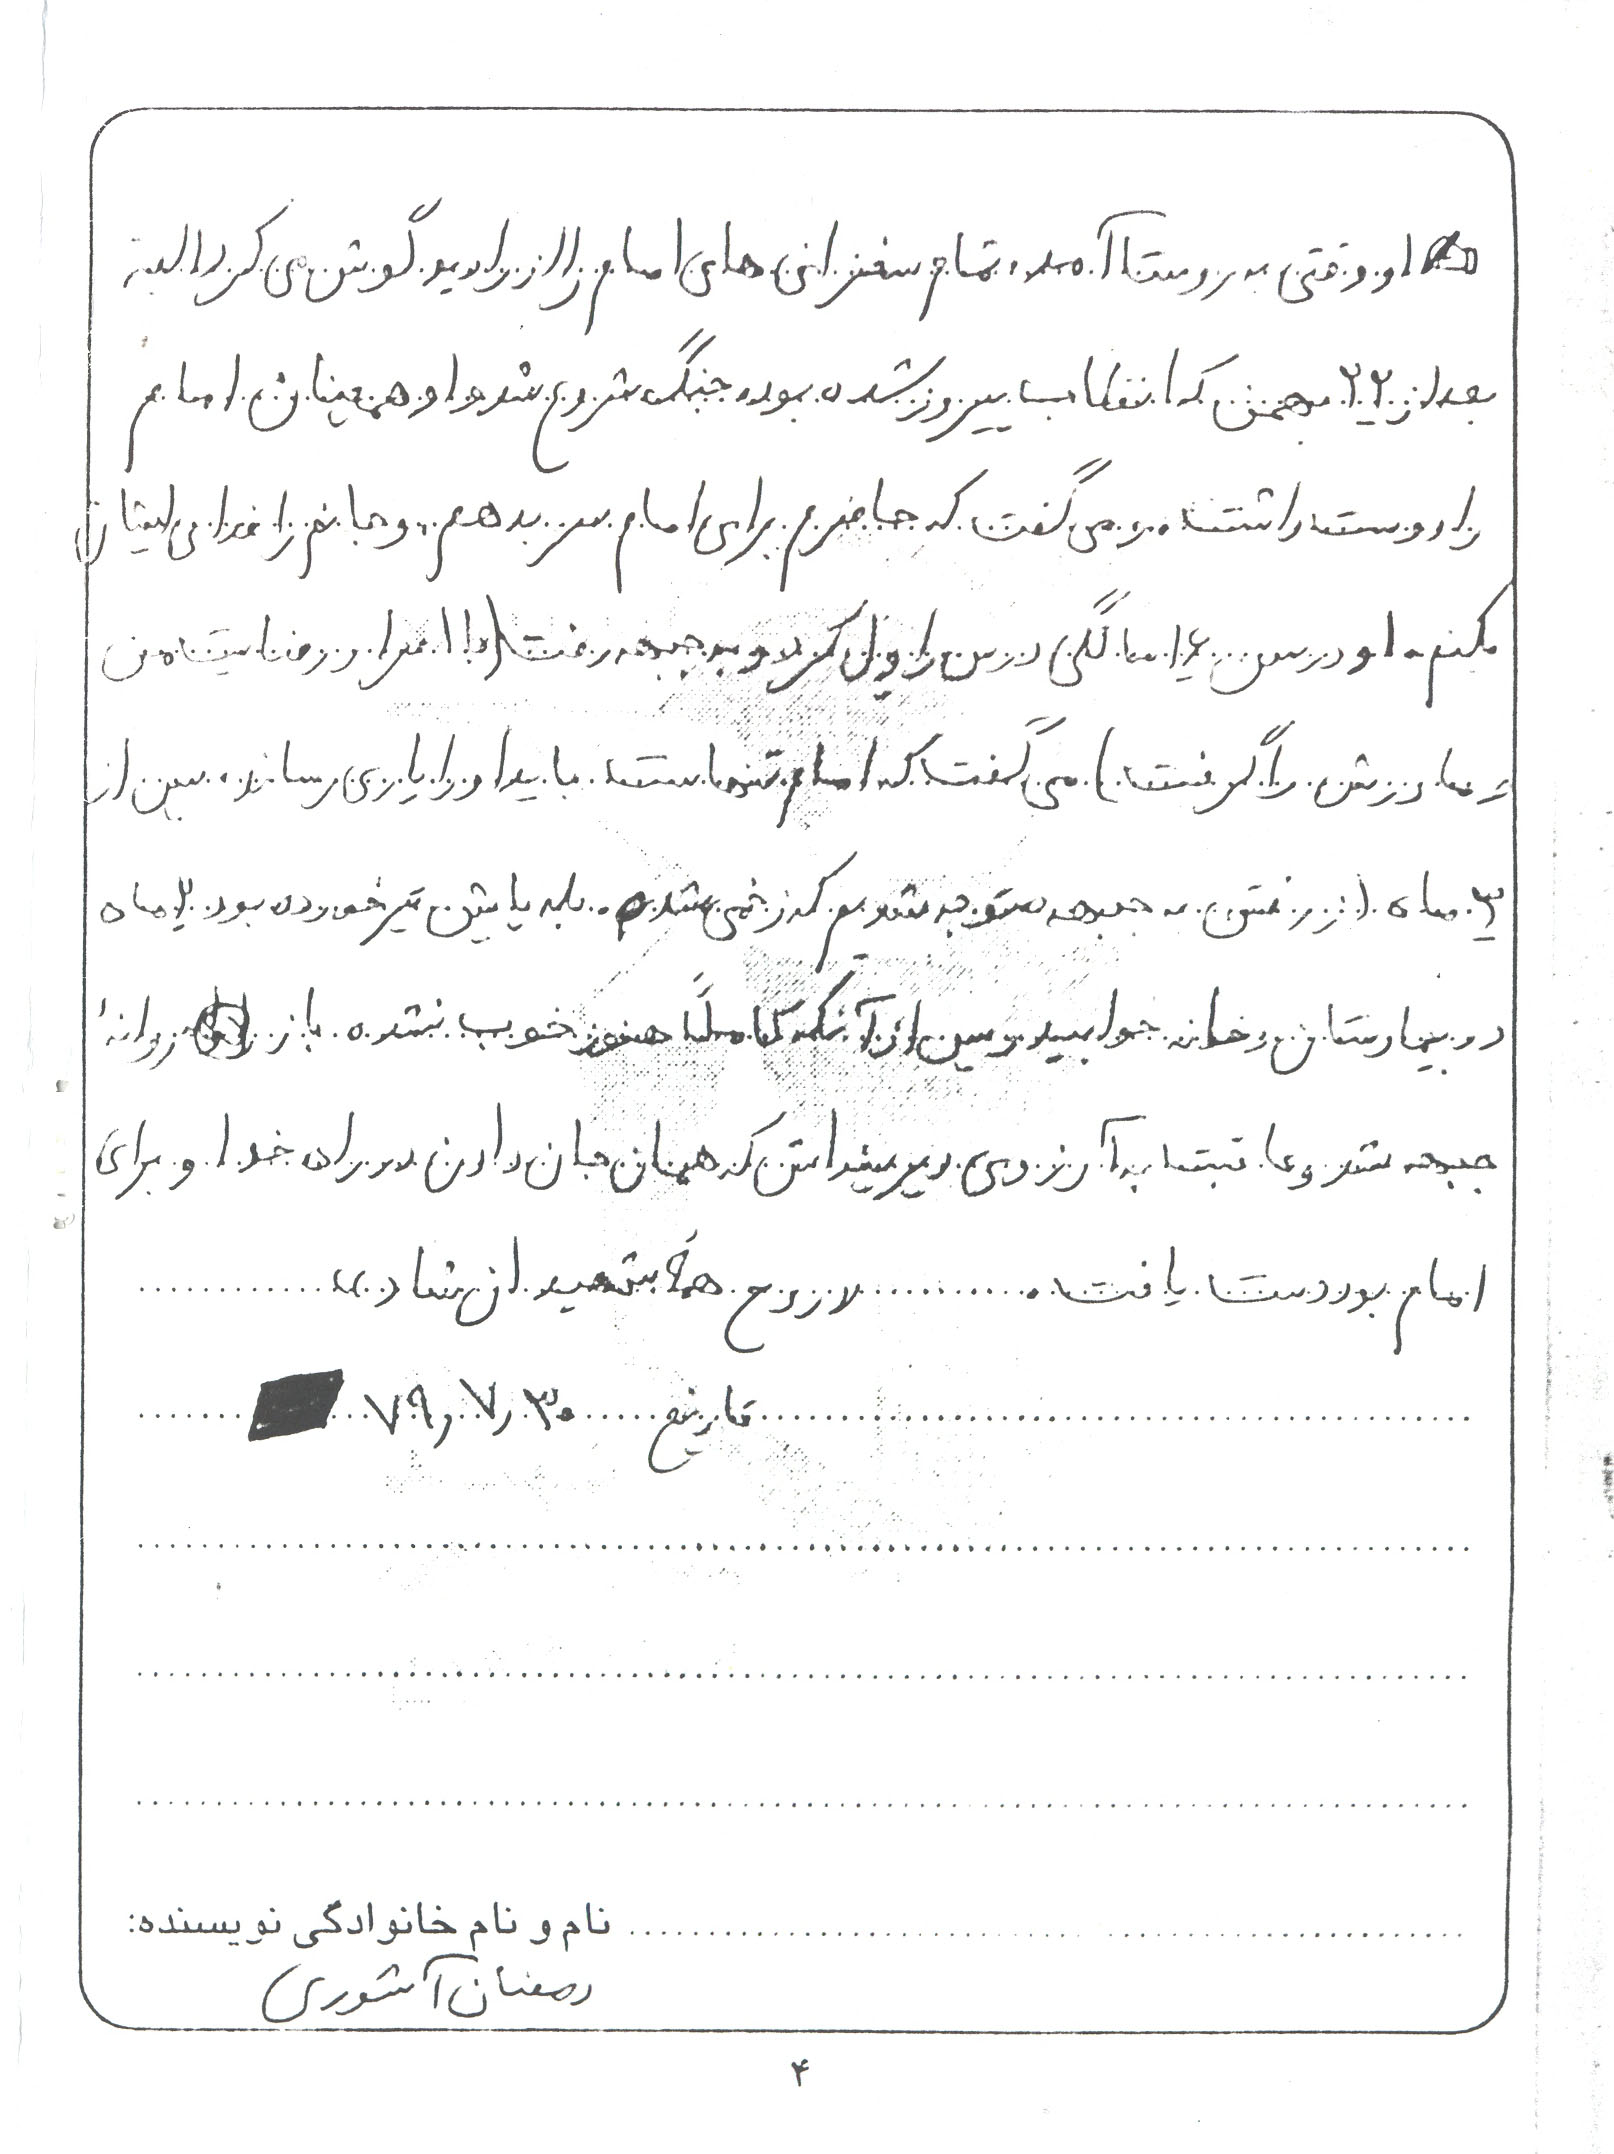 او وقتی به روستا آمد، تمام سخنرانی های امام را از رادیو گوش می کرد البته
بعد از ۲۲ بهمن که انقلاب پیروز شده بود، جنگ شروع شد و او همچنان امام
را دوست داشت و می گفت که حاضرم برای امام سر بدهم، و جانم را فدای ایشان
بکنم. او در سن ۱۶ سالگی درس را ول کرد و به جبهه رفت (با اصرار رضایت من
و مادرش را گرفت) می گفت که امام تنهاست باید او را یاری رساند، پس از
۳ ماه از رفتن به جبهه متوجه شدیم که زخمی شده. بله پایش تیر خورده بود ۲ ماه
در بیمارستان و خانه خوابید و پس از آنکه کاملاً هنوز خوب نشده باز روانهٔ
جبهه شد و عاقبت به آرزوی دیرینه اش که همان جان دادن در راه خدا و برای
امام بود دست یافت. «روح همهٔ شهیدان شاد»
تاریخ ۷۹٫۷٫۳۰
نام و نام خانوادگی نویسنده:
رمضان آشوری
۴